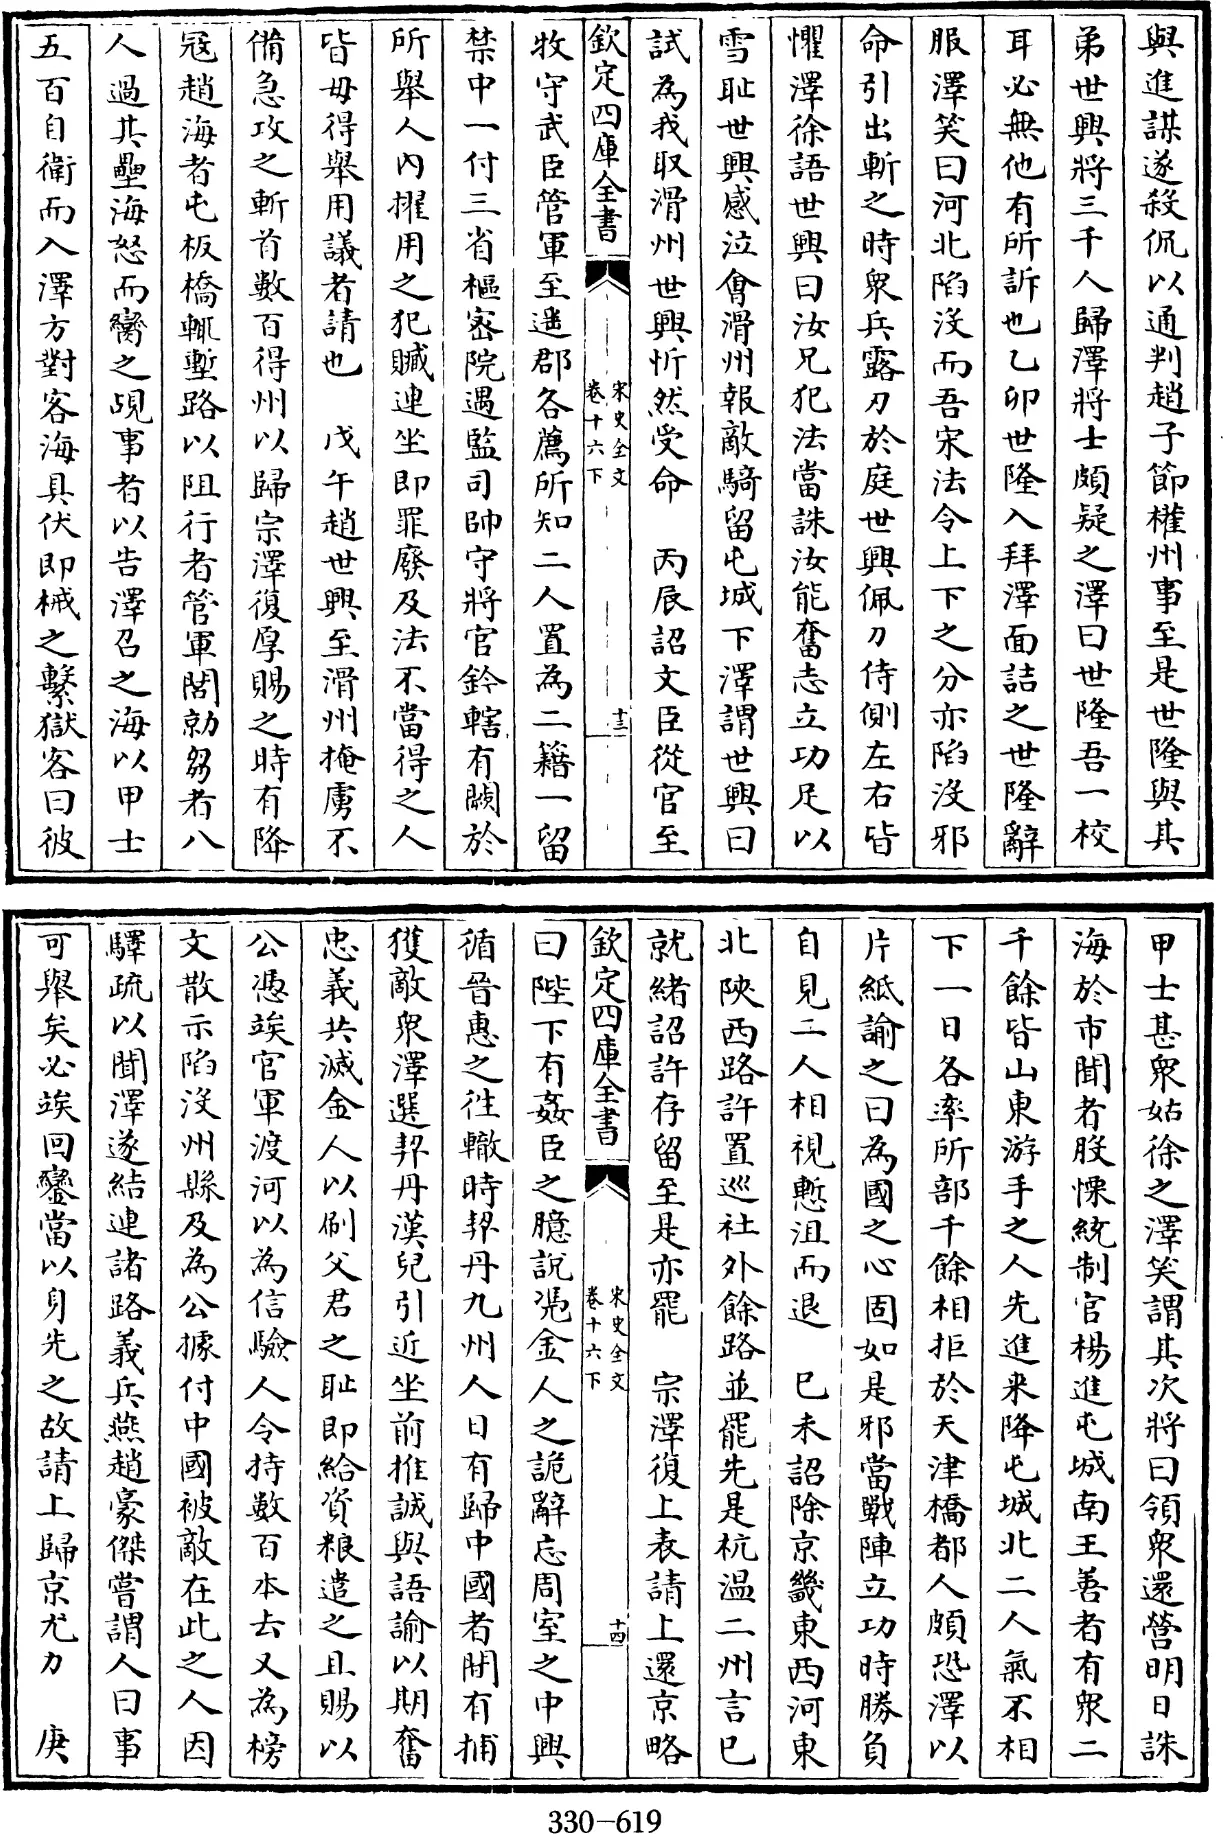 與進謀遂殺侃以通判趙子節權州事至是世隆與其
弟世興將三千人歸澤將士頗疑之澤曰世隆吾一校
耳必無他有所訴也乙卯世隆入拜澤面詰之世隆辭
服澤笑曰河北陷沒而吾宋法令上下之分亦陷沒邪
命引出斬之時衆兵露刀於庭世興佩刀侍側左右皆
懼澤徐語世興曰汝兄犯法當誅汝能奮志立功足以
雪恥世興感泣會滑州報敵騎留屯城下澤謂世興曰
試為我取滑州世興忻然受命　丙辰詔文臣從官至
欽定四庫全書
宋史全文
卷十六下
十三
牧守武臣管軍至遥郡各薦所知二人置為二籍一留
禁中一付三省樞密院遇監司帥守將官鈐轄有闕於
所舉人內擢用之犯贓連坐即罪廢及法不當得之人
皆毋得舉用議者請也　戊午趙世興至滑州掩虜不
備急攻之斬首數百得州以歸宗澤復厚賜之時有降
冦趙海者屯板橋輒塹路以阻行者管軍閭勍芻者八
人過其壘海怒而臠之覘事者以告澤召之海以甲士
五百自衛而入澤方對客海具伏即械之繫獄客曰彼
甲士甚衆姑徐之澤笑謂其次將曰領衆還營明日誅
海於市聞者股慄統制官楊進屯城南王善者有衆二
千餘皆山東游手之人先進来降屯城北二人氣不相
下一日各率所部千餘相拒於天津橋都人頗恐澤以
片紙諭之曰為國之心固如是邪當戰陣立功時勝負
自見二人相視慙沮而退　已未詔除京畿東西河東
北陜西路許置巡社外餘路並罷先是杭溫二州言已
就緒詔許存留至是亦罷　宗澤復上表請上還京略
欽定四庫全書
宋史全文
卷十六下
十四
曰陛下有姦臣之臆說凭金人之詭辭忘周室之中興
循晉惠之徃轍時契丹九州人日有歸中國者間有捕
獲敵衆澤選契丹漢兒引近坐前推誠與語諭以期奮
忠義共滅金人以刷父君之恥即給資粮遣之且賜以
公憑竢官軍渡河以為信驗人令持數百本去又為榜
文散示陷沒州縣及為公據付中國被敵在此之人因
驛疏以聞澤遂結連諸路義兵燕趙豪傑嘗謂人曰事
可舉矣必竢回鑾當以身先之故請上歸京尤力　庚
330-619